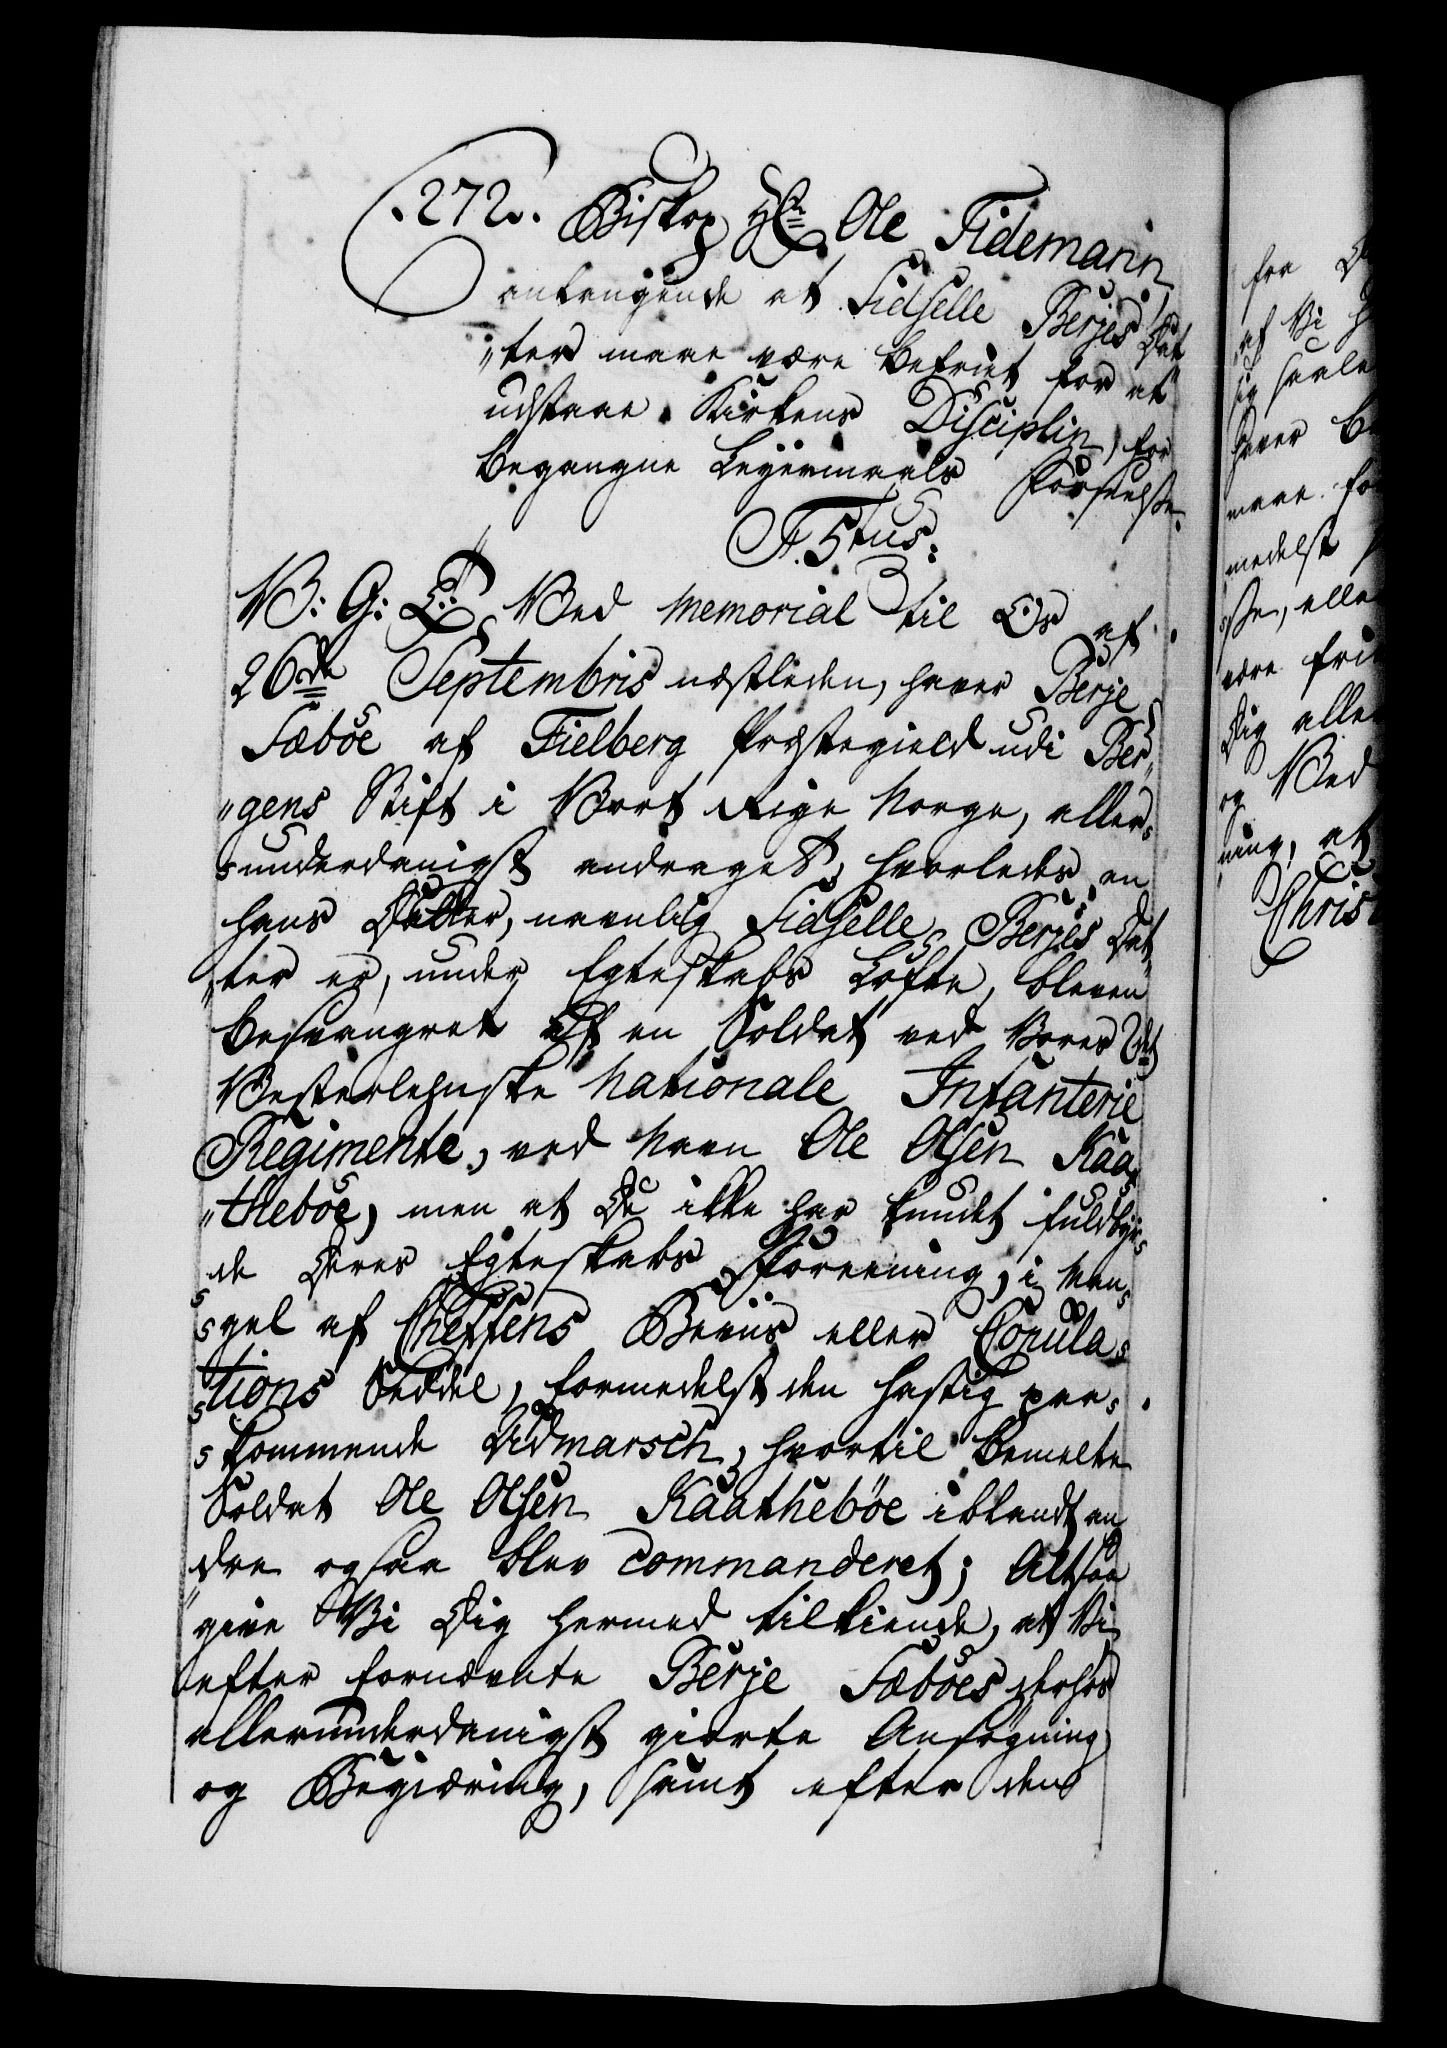 272. Biskop Hr. Ole Tidemann,
anlangende at Sidselle Berjes Dat
"ter maae være befriet for at
udstaae Kirkens Disciplin, for
begangne Lejermaals Forseelse.
F. 5tus.
V: G: G: Ved Memorial til Os af
26de Septembris næstleden, haver Berje
Sæbøe af Fielberg Præstegield udi Ber"
"gens Stift i Vort Rige Norge, aller=
=underdanigst andraget, hvorledes en
hans Datter, navnlig Sidselle Berjes Dat"
"ter er, under Egteskabs Løfte, bleven
besvangret af en Soldat ved Vores 2det
Vesterlehnske Nationale Infanterie
Regimente, ved Navn Ole Olsen Kaa"
"thebøe, men at De ikke har kundet fuldbyr=
=de Deres Egteskabs Foreening, i Man=
=gel af Cheffens Beviis eller Copula=
=tions Seddel, formedelst den hastig paa=
=kommende Udmarsch, hvortil bemelte
Soldat Ole Olsen Kaathebøe iblandt an
"dre ogsaa blev commanderet; Altsaa
give Vi Dig hermed tilkiende, at Vi
efter fornævnte Berje Sæbøes derhos
allerunderdanigst giorte Ansøgning
og Begiæring, samt efter den
fra D
af Vi
sig saale
haver
maae fo
medelst
=se, elle
være fri
Dig alle
og Ved
ning, at
Chris